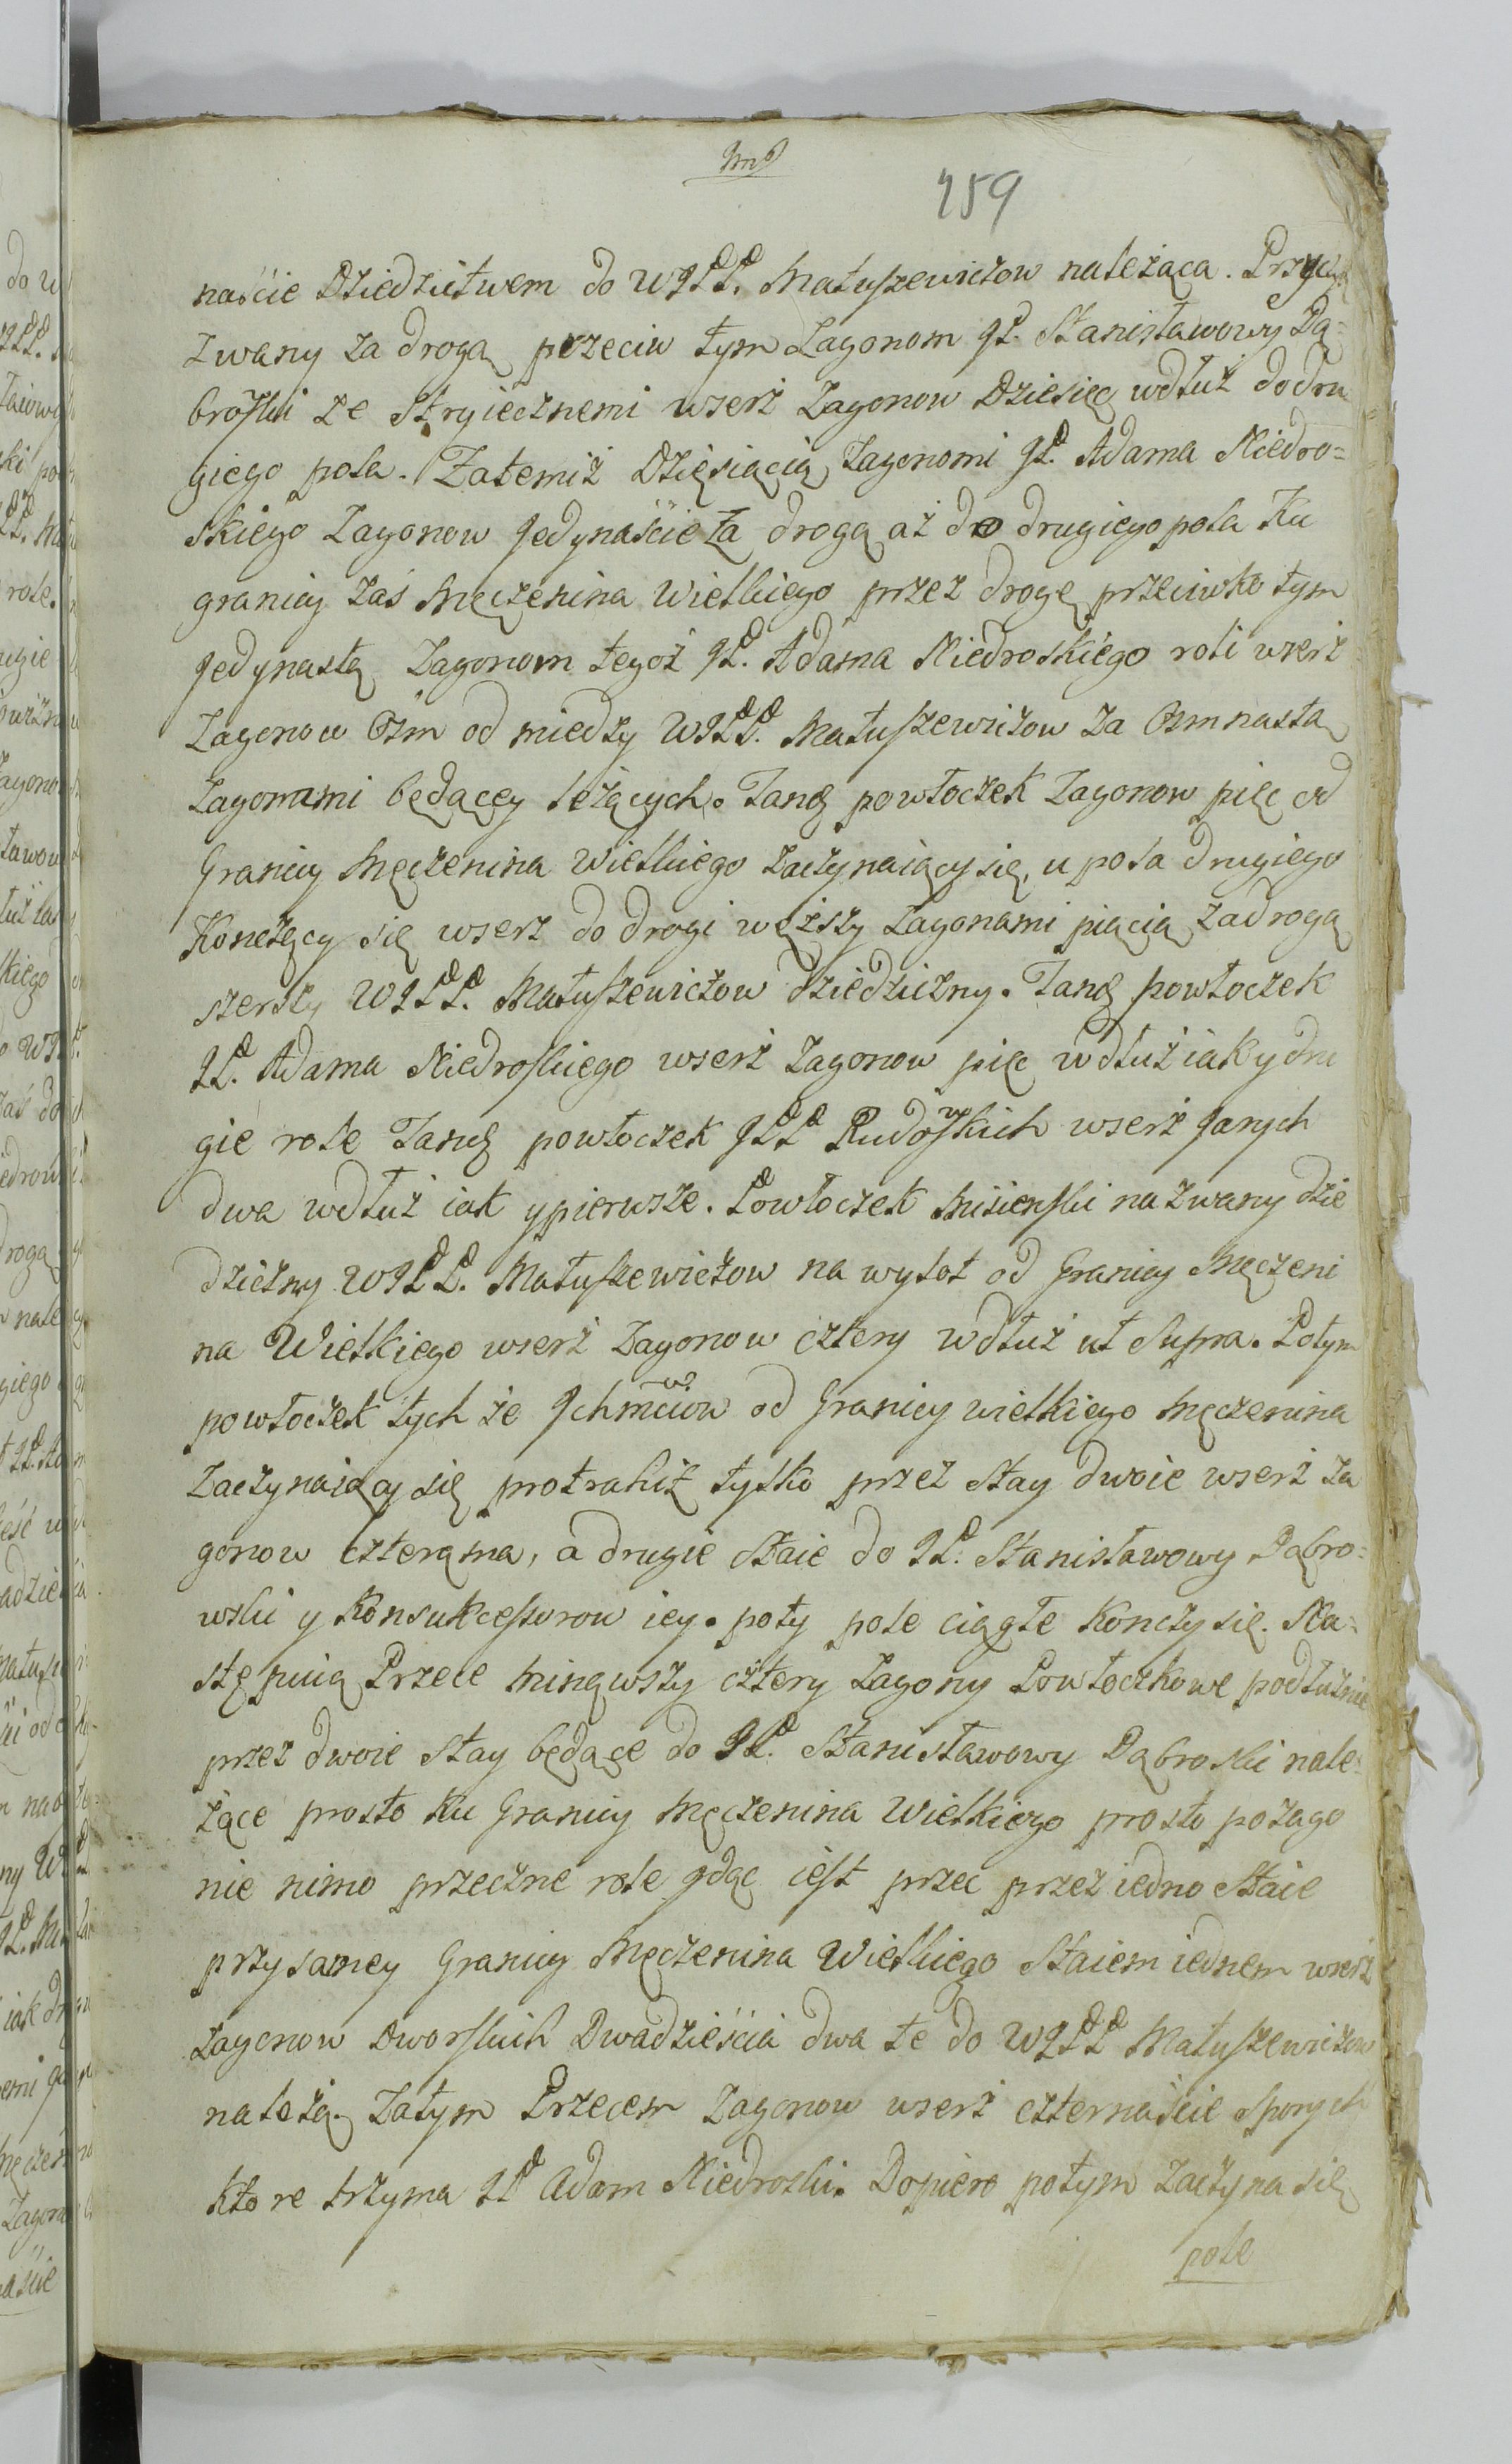 459
naście Dziedzictwem do WJPP. Matuszewiczow należąca. Przycz
zwany za drogą przeciw tym Zagonom JP. Stanisławowy Dą=
broski ze Stryiecznemi wserz Zagonow Dziesięc wdłuż do dru
giego pola. Zatemiż Dziesiącią Zagonomi JP. Adama Niedro=
skiego Zagonow Jedynaście za drogą aż do drugiego pola Ku
granicy zaś Męczenina Wielkiego przez drogę przeciwko tym
Jedynastą Zagonom tegoż JP. Adama Niedroskiego roli wserz
Zagonow Osm od miedzy WJPP. Matuszewiczow za Osmnastą
Zagonami będącey leżących. Tand powłoczek Zagonow pięc od
Granicy Męczenina Wielkiego zaczynaiący się, u pola drugiego
Konczący się wserz do drogi węższy Zagonami piącią za drogą
szerszy WJPP. Matuszewiczow dziedziczny. Tand powłoczek
JP. Adama Niedroskiego wserz Zagonow pięc wdłuż iak y dru
gie role Tand powłoczek JPP Rudowskich wserz Janych
dwa wdłuż iak y pierwsze. Powłoczek Misienski nazwany dzie
dziczny WJPP. Matuszewiczow na wylot od Granicy Męczeni
na Wielkiego wserz Zagonow cztery wdłuż ut Supra. Potym
powłoczek tych że Jchmciow od Granicy wielkiego Męczenina
Zaczynaiący się protrahit tylko przez Stay dwoie wserz Za
gonow Czterąma, a drugie Staie do JP. Stanisławowy Dąbro=
wski y Konsukcessorow iey. poty pole ciągłe Konczy się. Na=
stępuią Przece minąwszy cztery Zagony Powłoczkowe podłużnie
przez dwoie Stay będące do JP. Stanisławowy Dąbroski nale=
żące prosto Ku Granicy Męczenina Wielkiego prosto po zago
nie nimo przeczne role gdzie iest przec przez iedno Staie
przy samey Granicy Męczenina Wielkiego Staiem iednem wserz
Zagonow Dworskich Dwadzieścia dwa te do WJPP Matuszewiczow
należą. Zatym Przecem Zagonow wserz czternaście Sporych
Ktore trzyma JP Adam Niedroski. Dopiero potym zaczyna się
pole